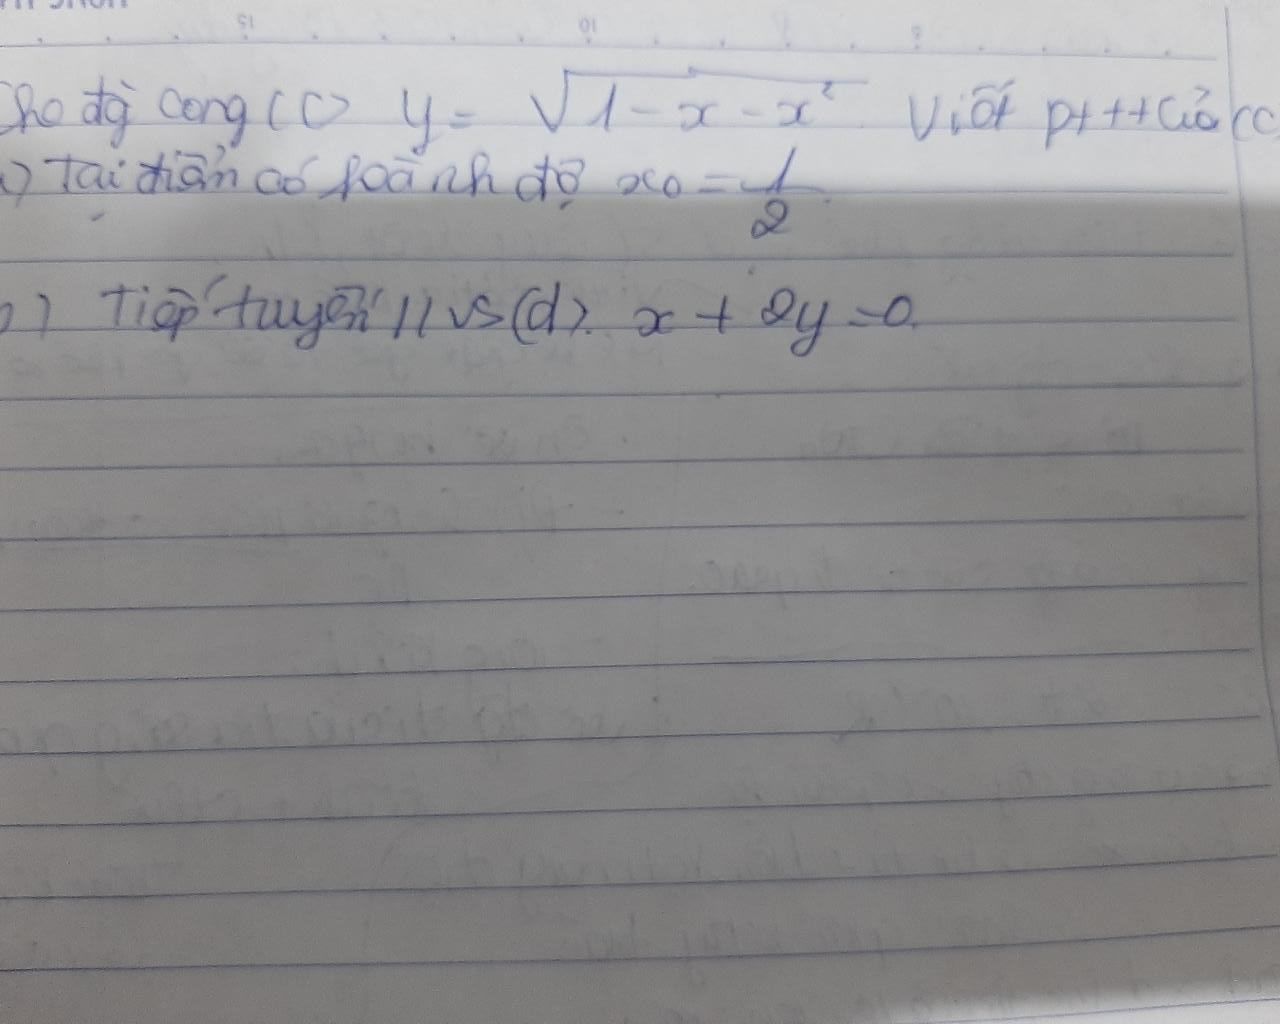 Cho đg cong (C) y = √1 - x - x² Viết pt tt của (C
a) Tại điểm có hoành độ x₀ = 1/2
b) Tiếp tuyến // vs (d). x + 2y = 0.